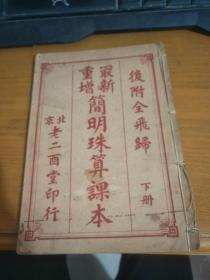 後附全飛歸
下册
最新
重增
簡明珠算課本
北京
老二酉堂印行